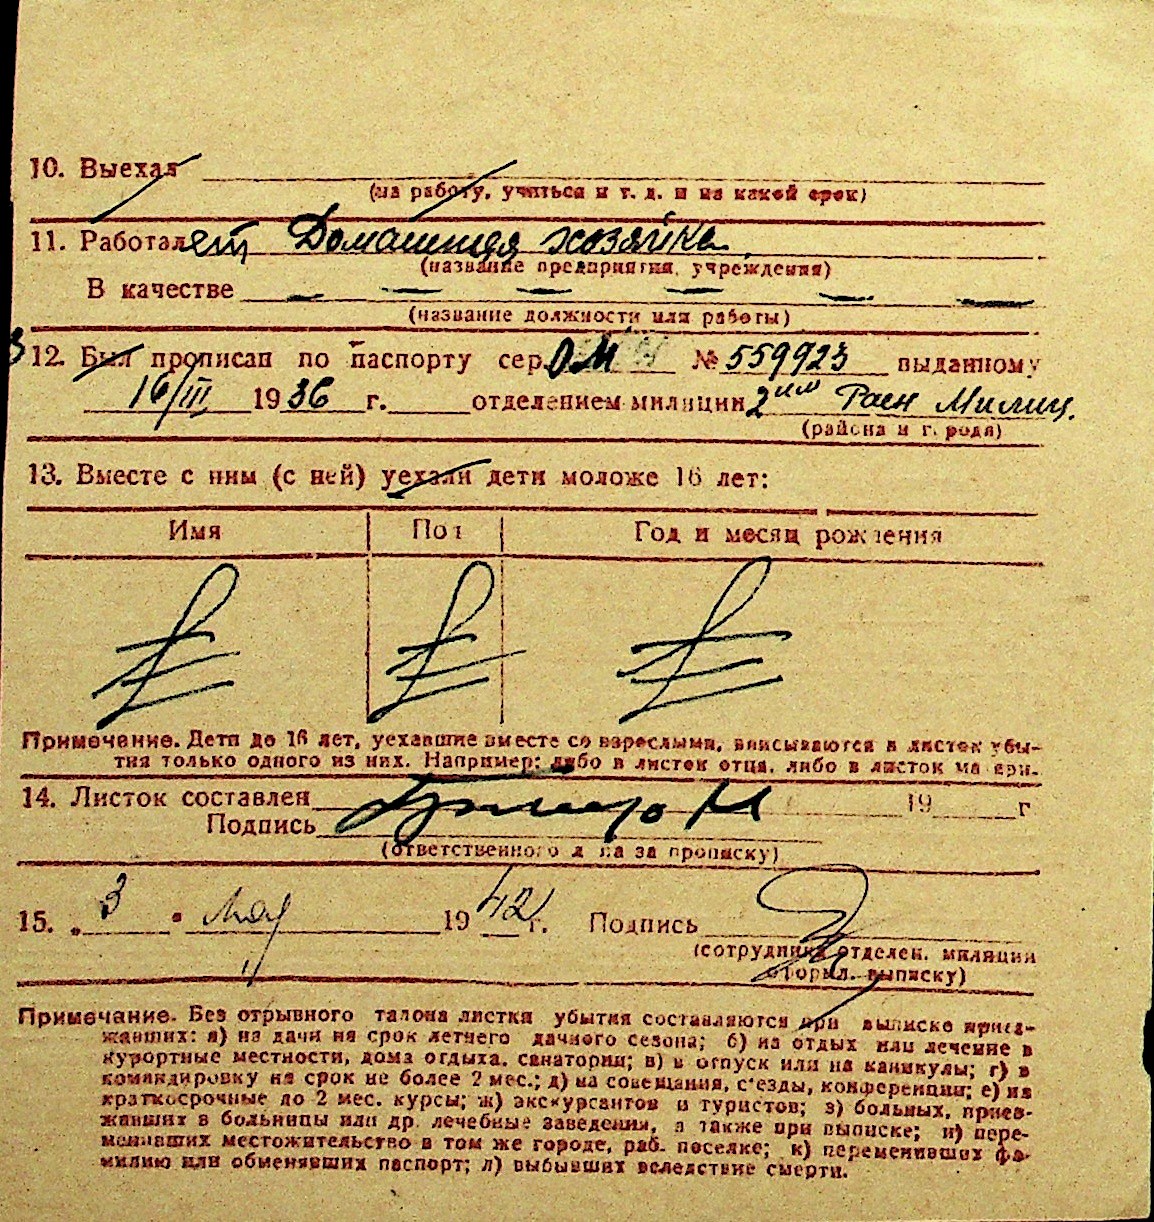 10. Выехал
(на работу, учиться и т. д. и на какой срок)
11. Работает Домашняя хозяйка
(название предприятия, учреждения)
В качестве — — — — — —
(название должности или работы)
12. Был прописан по паспорту сер. ОМ № 559923 выданному
16/III 1936 г. отделением милиции 2им Раен Милиц.
(района и города)
13. Вместе с ним (с ней) уехали дети моложе 16 лет:
Имя Пол Год и месяц рождения
Примечание. Дети до 16 лет, уехавшие вместе со взрослыми, вписываются в листок убы-
тия только одного из них. Например: либо в листок отца, либо в листок матери.
14. Листок составлен 19 г
Подпись
(ответственного л на за прописку)
15. „ 3 " мая 1942 г. Подпись
(сотрудника отделен. милиции
оформл. выписку)
Примечание. Без отрывного талона листки убытия составляются при выписке приез-
жавших: а) на дачи на срок летнего дачного сезона; б) на отдых или лечение в
курортные местности, дома отдыха, санатории; в) в отпуск или на каникулы; г) в
командировку на срок не более 2 мес.; д) на совещания, с'езды, конференции; е) на
краткосрочные до 2 мес. курсы; ж) экскурсантов и туристов; з) больных, приез-
жавших в больницы или др. лечебные заведения, а также при выписке; и) пере-
менивших местожительство в том же городе, раб. поселке; к) переменивших фа-
милию или обменявших паспорт; л) выбывших вследствие смерти.